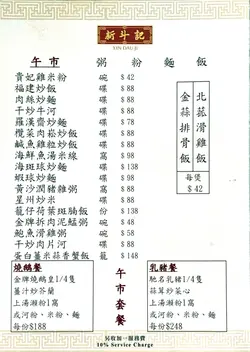 新斗記
YIN DAU JI
午市 粥 粉 麵 飯
貴妃雞米粉 碗 $42
福建炒飯 碟 $88
肉絲炒麵 碟 $88
干炒牛河 碟 $88
羅漢齋炒麵 碟 $78
欖菜肉崧炒飯 碟 $88
鹹魚雞粒炒飯 碟 $88
海鮮魚湯米線 窩 $98
海斑球炒麵 碟 $138
蝦球炒麵 碟 $98
黃沙潤豬雞粥 窩 $88
星州炒米 碟 $88
龍仔荷葉斑腩飯 份 $138
金牌拆肉泥鯭粥 窩 $138
鮑魚滑雞粥 碗 $58
干炒肉片河 碟 $88
蛋白薑米蒜香蟹飯 籠 $148
北菇滑雞飯
金蒜排骨飯
每煲
$42
燒鵝餐
金牌燒鵝皇1/4隻
薑汁炒芥蘭
上湯瀨粉1窩
或河粉、米粉、麵
每份$188
午市套餐
乳豬餐
馳名乳豬1/4隻
蒜茸炒菜心
上湯瀨粉1窩
或河粉、米粉、麵
每份$248
另收加一服務費
10% Service Charge